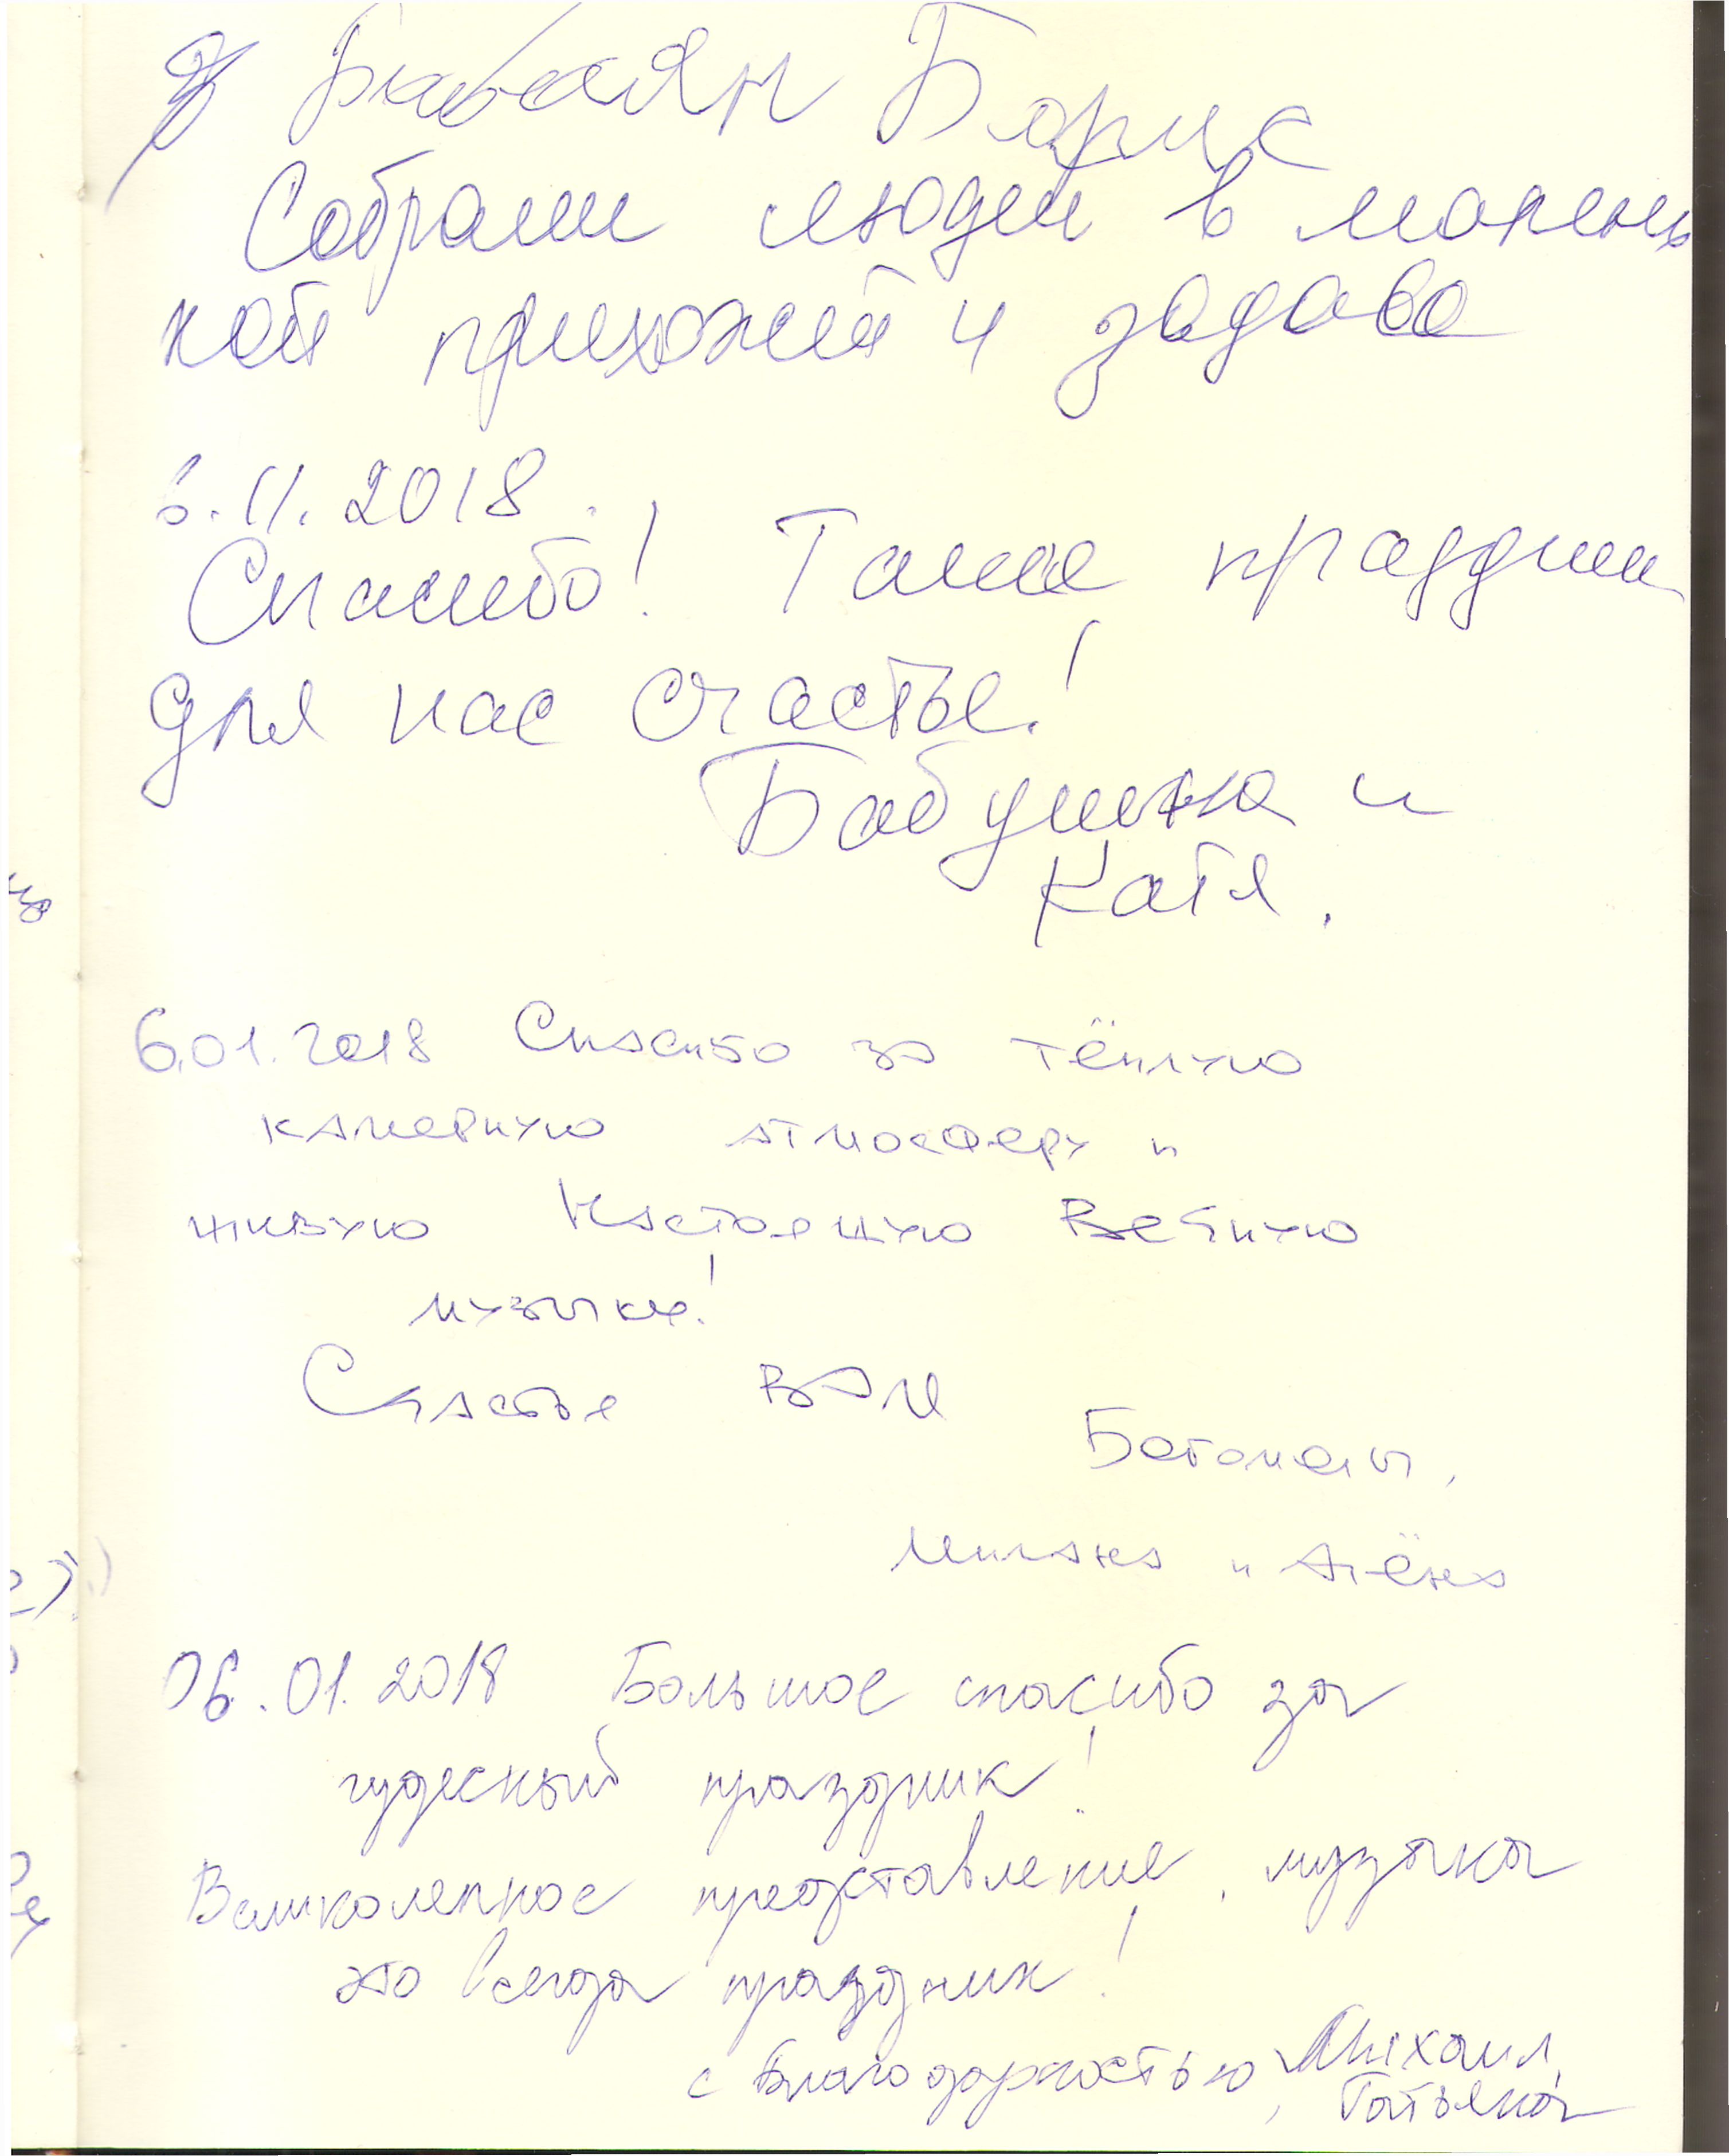 Я Бабаян Борис
Собрали людей в малень
кой прихожей и
6.11.2018.
Спасибо! Такие праздники
для нас счастье!
Бабушка и
Катя.
6.01.2018 Спасибо за тёплую
камерную атмосферу и
живую Настоящую Вечную
музыку!
Счастья ВАМ
Милана и Алёна
06.01.2018 Большое спасибо за
чудесный праздник!
Великолепное представление, музыка
это всегда праздник!
с благодарностью, Михаил,
Татьяна